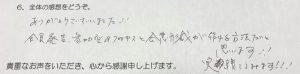 6、全体の感想をどうぞ。
ありがとうございました!!
全員発言、意思決定のプロセスと合意形成が作れる方法だと
思います!!
実践してみます!!
貴重なお声をいただき、心から感謝申し上げます。